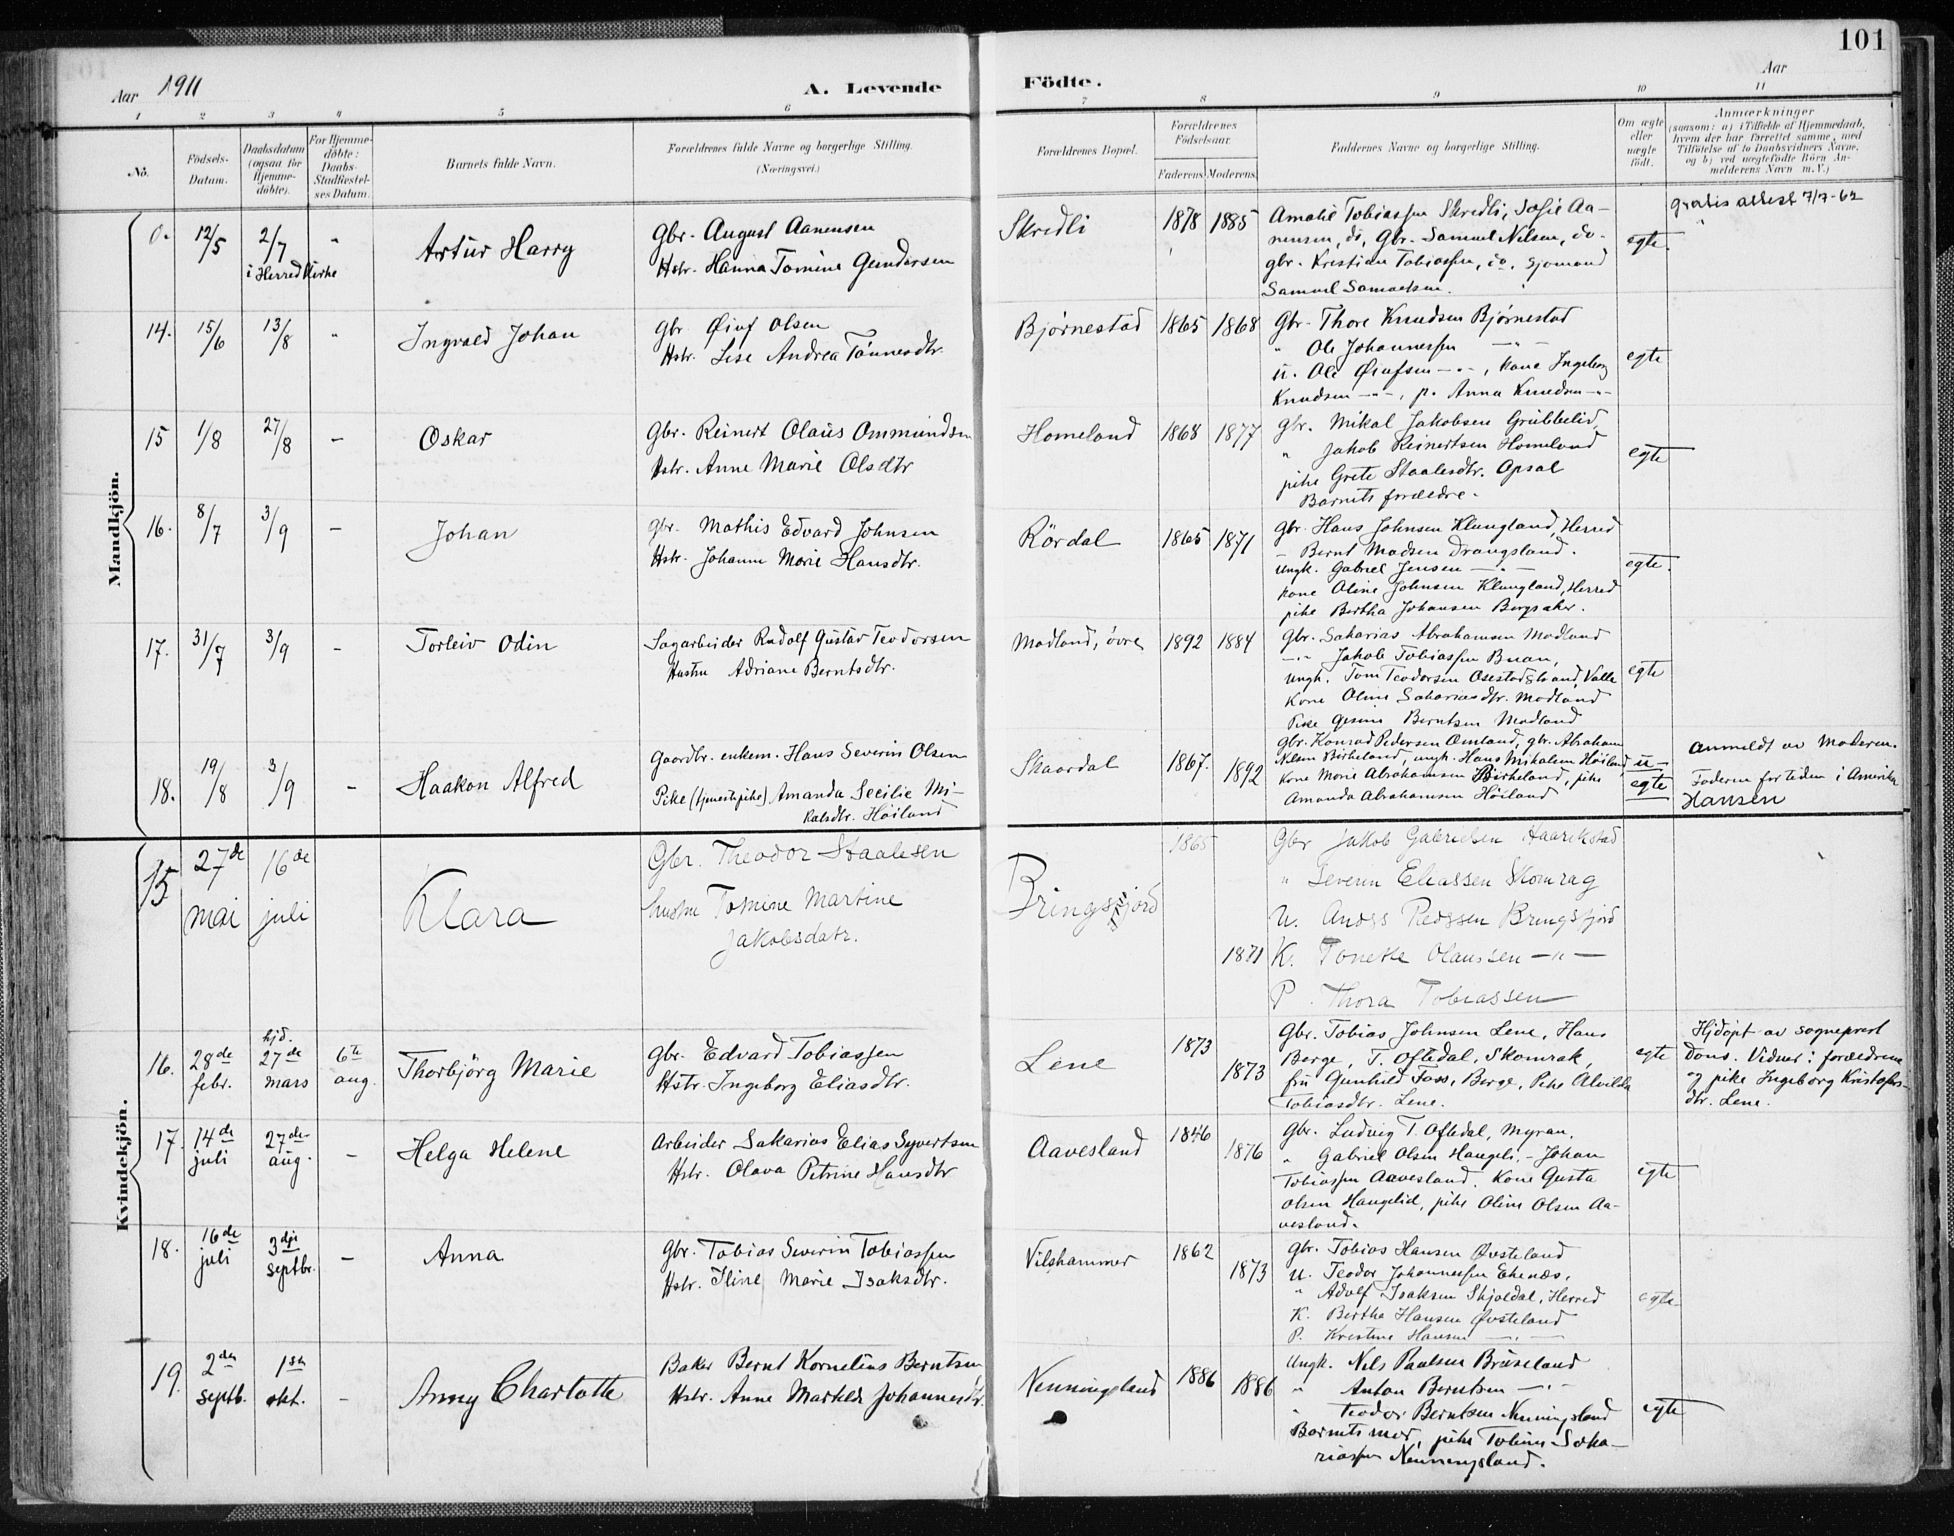 101
Aar 1911
A. Levende
Födte.
Aar
1 2 3 4 5 6 7 8 9 10 11
No.
Födsels-Datum.
Daabsdatum (ogsaa for Hjemmedöbte).
For Hjemmedöbte: Daabs-Stadfæstelses Datum.
Barnets fulde Navn.
Forældrenes fulde Navne og borgerlige Stilling.
(Næringsvei.)
Forældrenes Bopæl.
Forældrenes Födselsaar.
Faderens. Moderens.
Faddernes Navne og borgerlige Stilling.
Om ægte eller uægte födt.
Anmærkninger
(saasom: a) i Tilfælde af Hjemmedaab, hvem der har forrettet samme, med Tilföielse af to Daabsvidners Navne, og b) ved uægtefödte Börn Anmelderens Navn m.V.)
Mandkjön.
0. 12/5 2/7 i Herred Kirke " Artur Harry
Gbr. August Aanensen
Hstr. Hanna Tomine Gundersen
Skredli 1878 1885
Amalie Tobiassen Skredli, Sofie Aa-
nensen, do, Gbr. Samuel Nilsen, do-
gbr. Kristian Tobiassen, do, sjømand
Samuel Samuelsen.
egte.
gratis attest 7/7-62
14. 15/6 13/8 " Ingvald Johan
Gbr Øiuf Olsen
Hstr. Lise Andrea Tønnesdtr.
Bjørnestad 1865 1868
Gbr. Thore Knudsen Bjørnestad
" Ole Johannessen - " -
U. Ole Øiufsen -"-, kone Ingeborg
Knudsen -"-, p. Anna Knudsen -"-
egte
15 1/8 27/8 - Oskar
Gbr. Reinert Olaus Ommundsen
Hstr. Anne Marie Olsdtr
Homeland 1868 1877
gbr. Mikal Jakobsen Grubbelid,
" Jakob Reinertsen Homeland
pike Grete Staalesdtr. Opsal
Barnets forældre.
egte
16. 8/7 3/9 - Johan
Gbr. Mathis Edvard Johnsen
Hstr. Johanne Marie Hansdtr.
Rördal 1865 1871
Gbr. Hans Johnsen Klungland, Herred
- Bernt Madsen Drangsland.
Ungk. Gabriel Jensen - " -
kone Oline Johnsen Klungland, Herred
pike Bertha Johansen Bergsaker.
egte.
17. 31/7 3/9 - Torleiv Odin
Sagarbeider Rudolf Gustav Teodorsen
Hustru Adriane Berntsdtr.
Modland, övre 1892 1884
Gbr. Sakarias Abrahamsen Modland
-"- Jakob Tobiassen Buan,
Ungk. Tom Teodorsen Osestadstrand, Valle
Kone Oline Sakariasdtr. Modland
Pike Gesine Berntsen Modland
egte
18. 19/8 3/9 - Haakon Alfred
Gaardbr. enkem. Hans Severin Olsen
Pike (tjenestepike) Amanda Secilie Mi-
kalsdtr. Höiland
Skaardal 1867. 1892
Gbr. Konrad Pedersen Omland, gbr. Abraham
Nilsen Birkeland, ungk. Hans Mikalsen Höiland,
Kone Marie Abrahamsen Birkeland, pike
Amanda Abrahamsen Höiland
u-
egte
Anmeldt av moderen.
Faderen for tiden i Amerika
Hansen
Kvindekjön.
15. 27de mai 16de juli Klara
Gbr. Theodor Staalesen
hustru Tomine Martine
Jakobsdatr.
Bringsfjord 1865 1871
Gbr Jakob Gabrielsen Haarikstad
" Severin Eliassen Skomrag
U. Anders Pederssen Bringsfjord
K. Tonette Olaussen -"-
P. Thora Tobiassen
16. 28de febr. hjd. 27de mars 6te aug. Thorbjörg Marie
Gbr. Edvard Tobiassen
Hstr. Ingeborg Eliasdtr.
Lene 1873 1873
Gbr. Tobias Johnsen Lene, Hans
Berge, T. Oftedal, Skomrak,
fru Gunhild Foss, Berge, Pike Alvilda
Tobiasdtr. Lene.
egte
Hjdøpt av sogneprest
Dons. Vidner: forældrene
og pike Ingeborg Kristofers-
dtr. Lene.
17. 14de juli 27de aug. - Helga Helene
Arbeider Sakarias Elias Syvertsen
Hstr. Olava Petrine Hansdtr
Aavesland 1846 1876
Gbr. Ludvig T. Oftedal, Myran.
" Gabriel Olsen Haugeli, - Johan
Tobiassen Aavesland. Kone Gusta
Olsen Haugelid, pike Oline Olsen Aa-
vesland.
egte
18. 16de juli 3dje septbr. - Anna
Gbr. Tobias Severin Tobiassen
Hstr. Iline Marie Isaksdtr.
Vilshammer 1862 1873
Gbr. Tobias Hansen Øvsteland
U. Teodor Johannessen Ekenæs,
" Adolf Isaksen Skjoldal, Herred
K. Bertha Hansen Øvsteland
P. Kristine Hansen - " -
egte
19. 2den septb. 1ste okt. - Anny Charlotte
Baker Bernt Kornelius Berntsen
Hstr. Anne Mathilde Johannesdtr.
Nenningsland 1886 1886
Ungk. Nils Paulsen Briseland
" Anton Berntsen - " -
" Teodor Berntsen Nenningsland
Barnets mor, pike Tobine Saka-
riassen Nenningsland.
egte